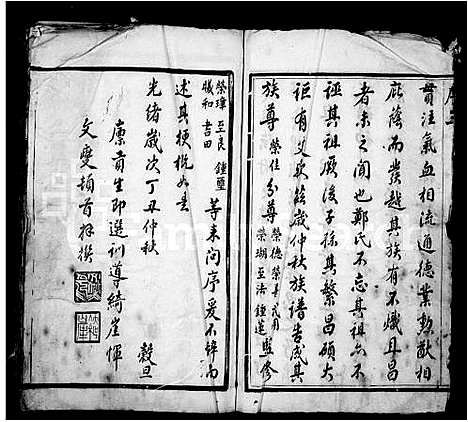 貫注氣血相流通德業勳猷相
庇蔭而發越其族有不熾且昌
者未之聞也鄭氏不忘其祖亦不
誣其祖厥後子孫其繁昌碩大
詎有艾歟茲歲仲秋族譜告成其
族尊 榮佳 分尊 榮德 榮華 式用 榮瑚 至法 鍾選 監修
榮璋 至良 鍾璽 曦和 書田 等来问序爰不辞而
述其梗概如是
光绪歲次丁丑仲秋 穀旦
廪貢生即選訓導綺崖惲
文變頓首拜撰